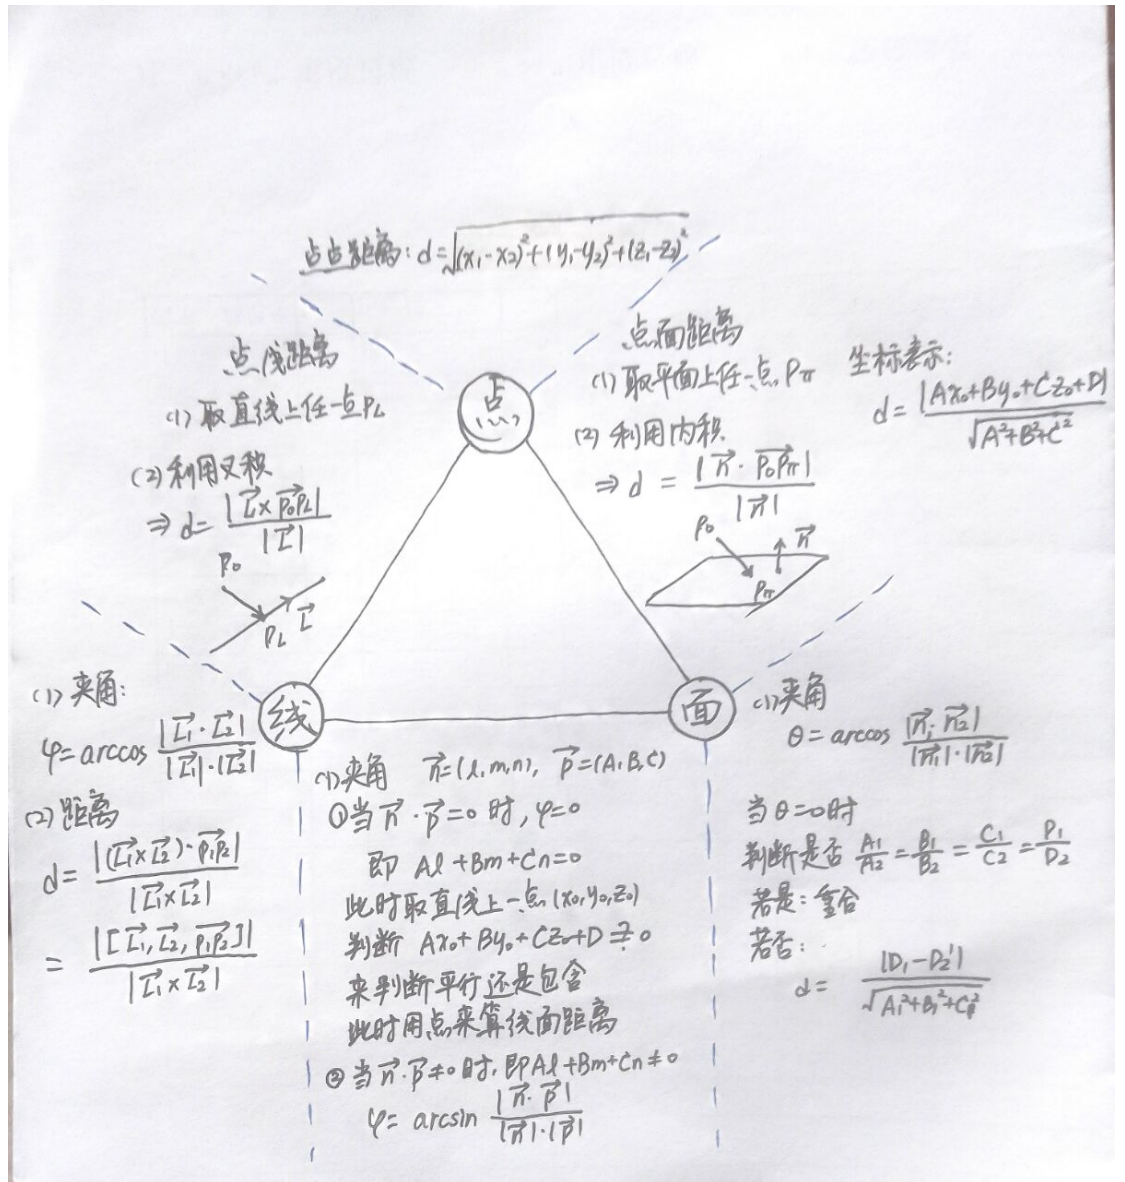 点点距离: d=√((x₁-x₂)²+(y₁-y₂)²+(z₁-z₂)²)
点线距离
(1) 取直线上任一点P_L
(2) 利用叉积
⇒ d= |L⃗×P₀P_L⃗| / |L⃗|
P₀
P_L L⃗
点
点面距离
(1) 取平面上任一点P_π
(2) 利用内积
⇒ d = |n⃗·P₀P_π⃗| / |n⃗|
P₀ n⃗
P_π
坐标表示:
d= |Ax₀+By₀+Cz₀+D| / √(A²+B²+C²)
线
面
(1) 夹角:
φ=arccos |L₁⃗·L₂⃗| / |L₁⃗|·|L₂⃗|
(2) 距离
d= |(L₁⃗×L₂⃗)·P₁P₂⃗| / |L₁⃗×L₂⃗|
= |[L₁⃗,L₂⃗,P₁P₂⃗]| / |L₁⃗×L₂⃗|
(1) 夹角 n⃗=(l,m,n), p⃗=(A,B,C)
①当n⃗·p⃗=0时, φ=0
即 Al+Bm+Cn=0
此时取直线上一点(x₀,y₀,z₀)
判断 Ax₀+By₀+Cz₀+D ≟ 0
来判断平行还是包含
此时用点来算线面距离
②当n⃗·p⃗≠0时,即Al+Bm+Cn≠0
φ= arcsin |n⃗·p⃗| / |n⃗|·|p⃗|
(1)夹角
θ=arccos |n₁⃗·n₂⃗| / |n₁⃗|·|n₂⃗|
当θ=0时
判断是否 A₁/A₂=B₁/B₂=C₁/C₂=D₁/D₂
若是: 重合
若否:
d= |D₁-D₂'| / √(A₁²+B₁²+C₁²)